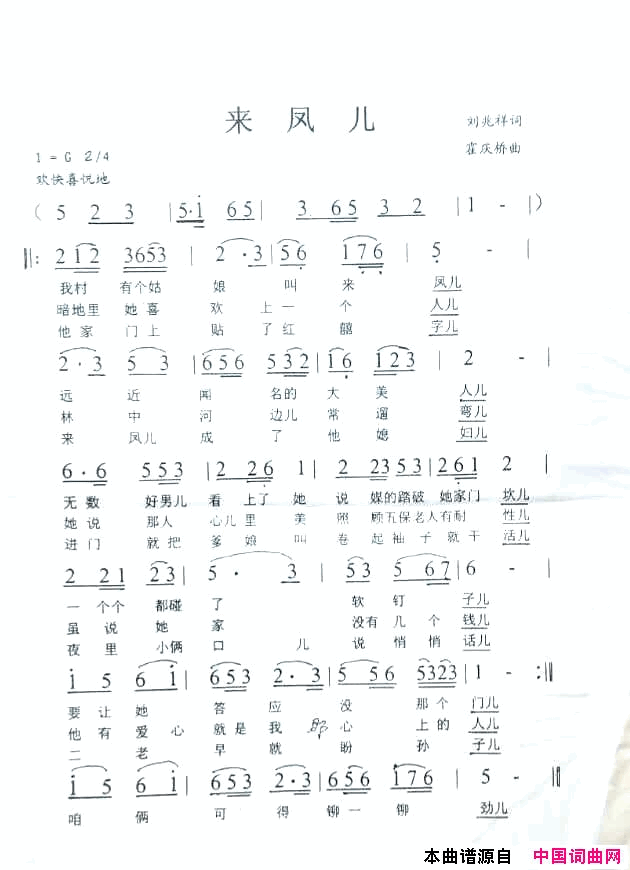 来凤儿
刘兆祥词
1 = G 2/4
霍庆桥曲
欢快喜悦地
( 5 2 3 | 5·i 65 | 3 65 235 2 | 1 - | )
‖: 2 12 3653 | 2·3 | 56 176 | 5 - |
我村 有个姑 娘 叫 来 凤儿
暗地里 她喜 欢 上一 个 人儿
他家 门上 贴了红 囍 字儿
2·3 5 3 | 656 532 | 16 123 | 2 - |
远 近 闻 名的 大 美 人儿
林 中 河 边儿 常 遛 弯儿
来 凤儿 成 了 他 媳 妇儿
6·6 553 | 2 26 1 | 2 23 53 | 2 61 2 |
无数 好男儿 看 上了 她 说 媒的踏破 她家门 坎儿
她说 那人 心儿里 美 照 顾五保老人有耐 性儿
进门 就把 爹娘叫 卷 起袖子就干 活儿
2 21 23 | 5· 3 | 53 5 67 | 6 - |
一 个个 都碰 了 软 钉 子儿
虽 说 她 家 没有几个 钱儿
夜 里 小俩 口 儿 说 悄悄 话儿
i 5 6 i | 653 2·3 | 5 56 5323 | 1 - :‖
要 让 她 答 应 没 那个 门儿
他有 爱心 就是 我 那 心 上的 人儿
二 老 早 就 盼 孙 子儿
i 5 6 i | 653 2·3 | 656 i76 | 5 - ‖
咱 俩 可 得 铆 一 铆 劲儿
本曲谱源自 中国词曲网